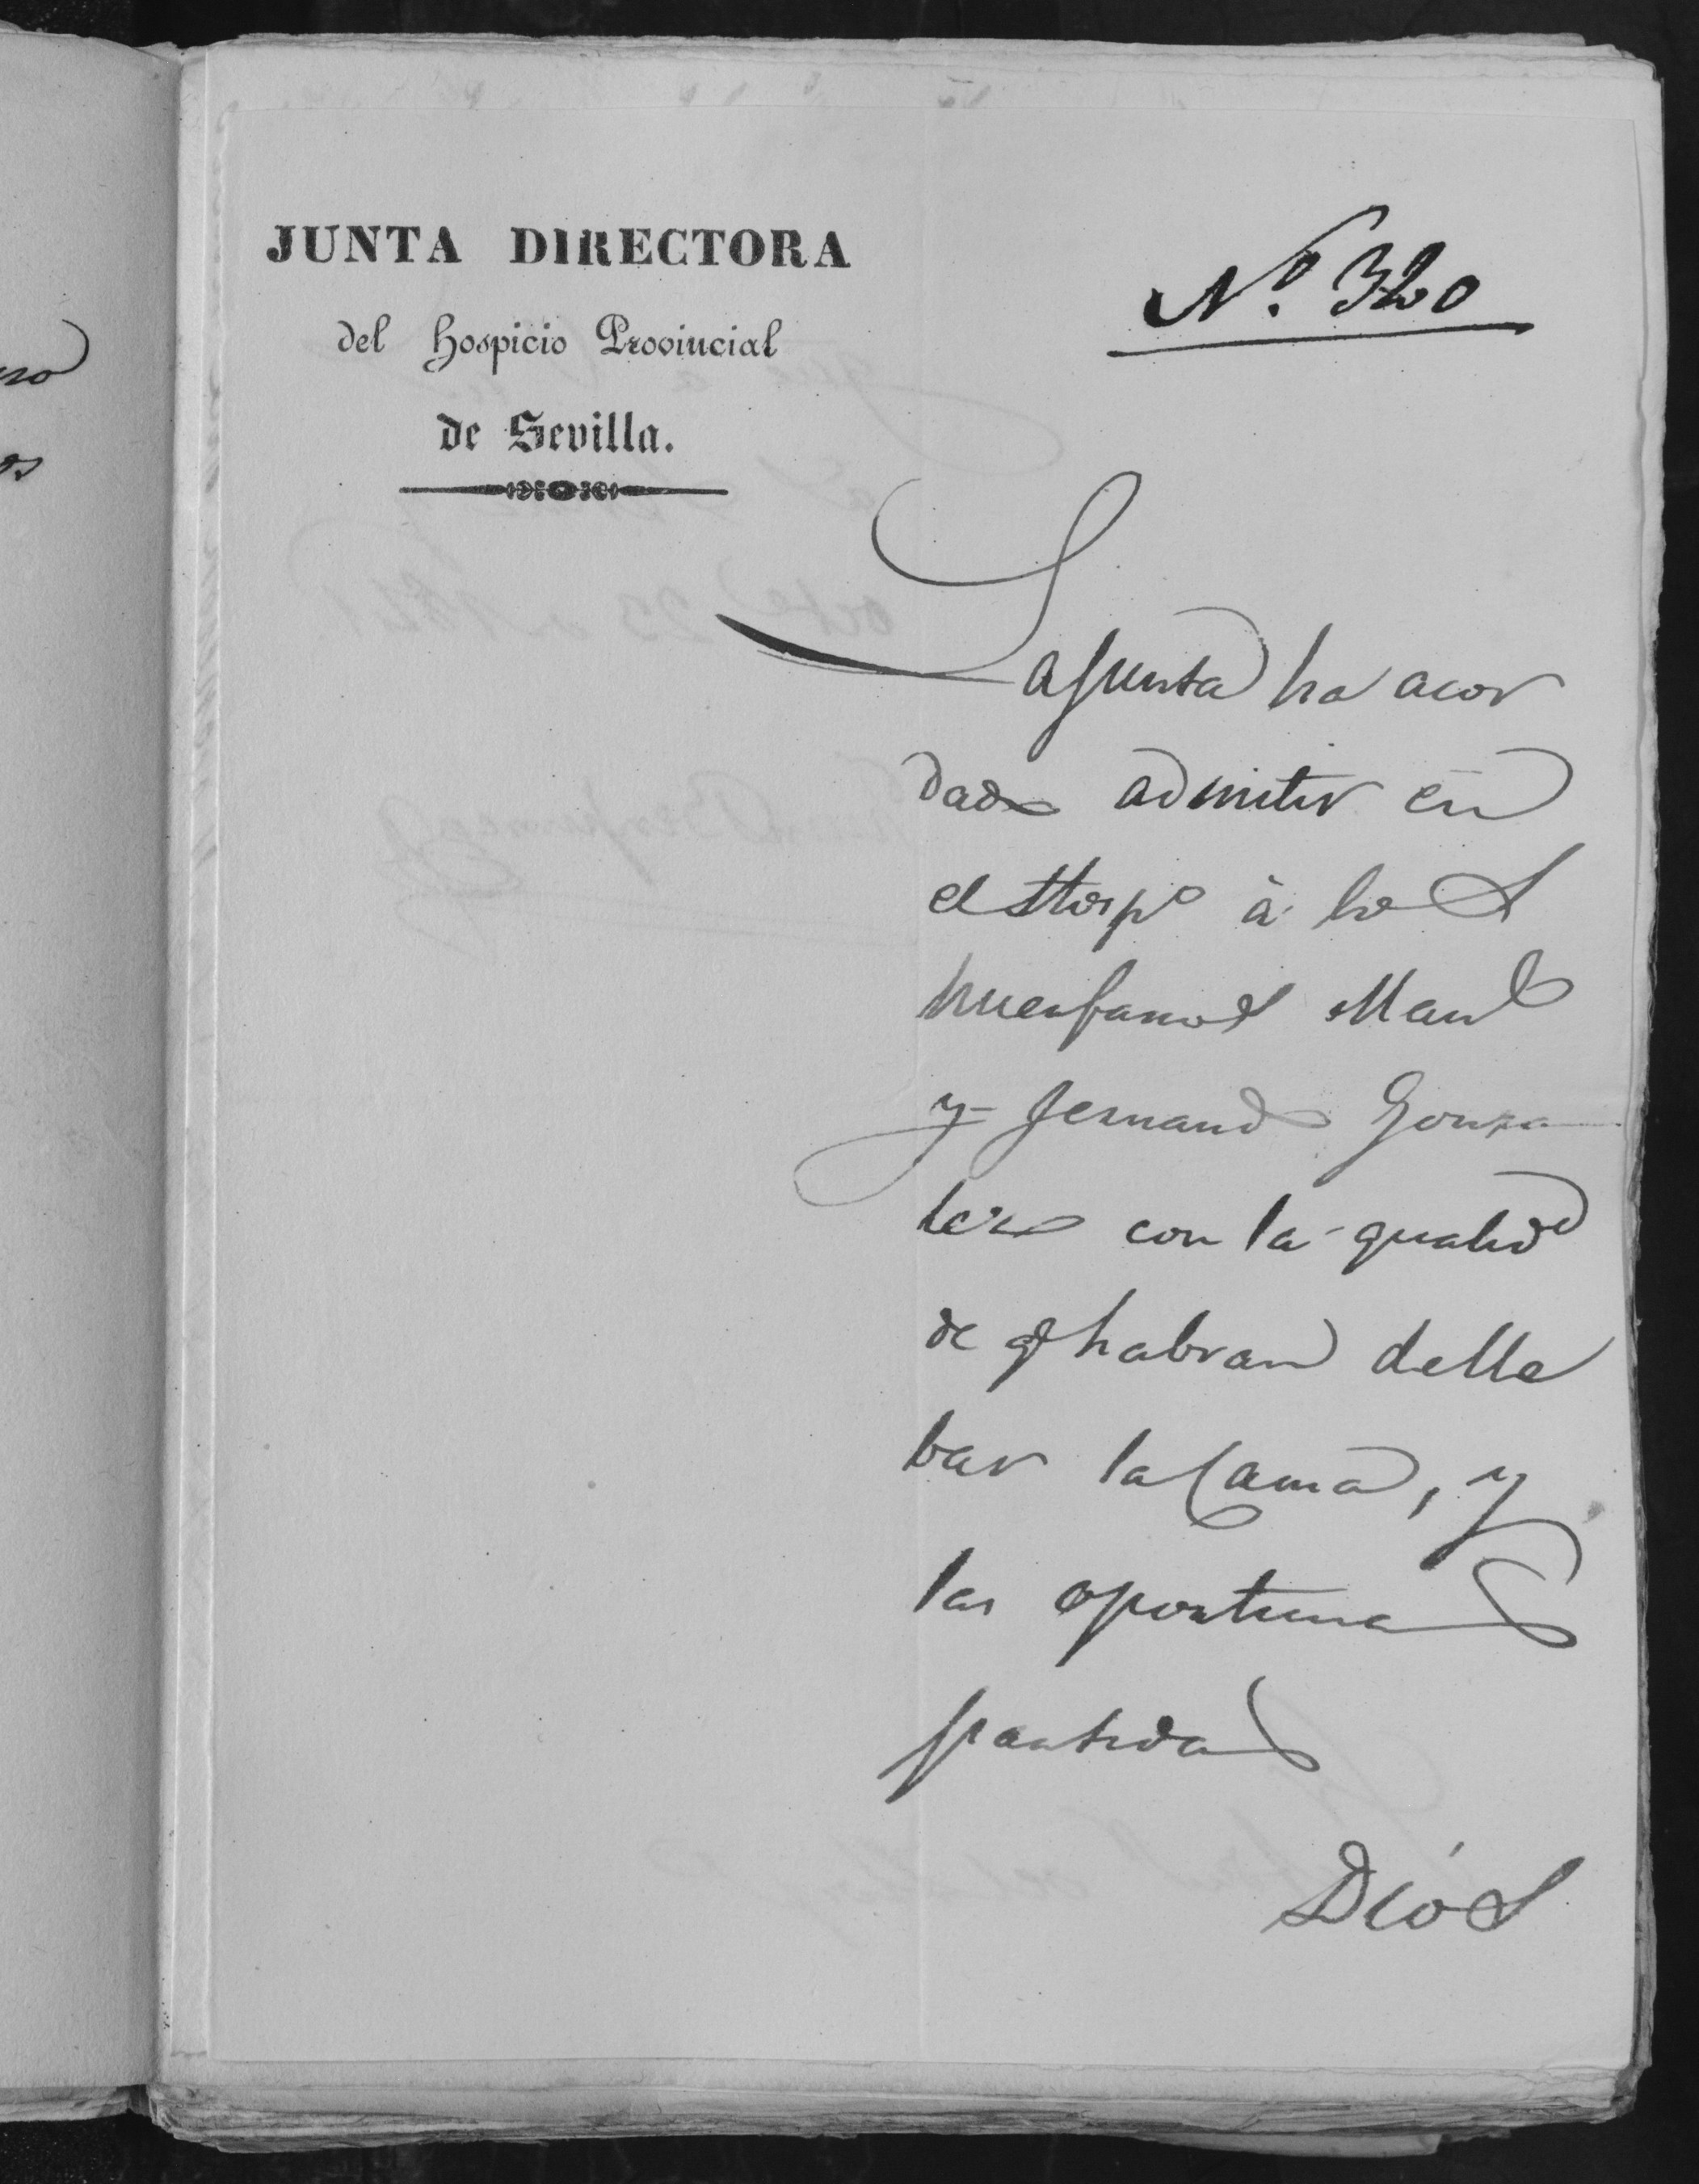 JUNTA DIRECTORA
del Hospicio Provincial
de Sevilla.
Nº. 320
La Junta ha acor
dado admitir en
el Hospº à los
huerfanos Manl
y Fernando Gonza
lez con la qualid
de q habran delle
bar la Cama, y
las oportunas
partidas
Dios